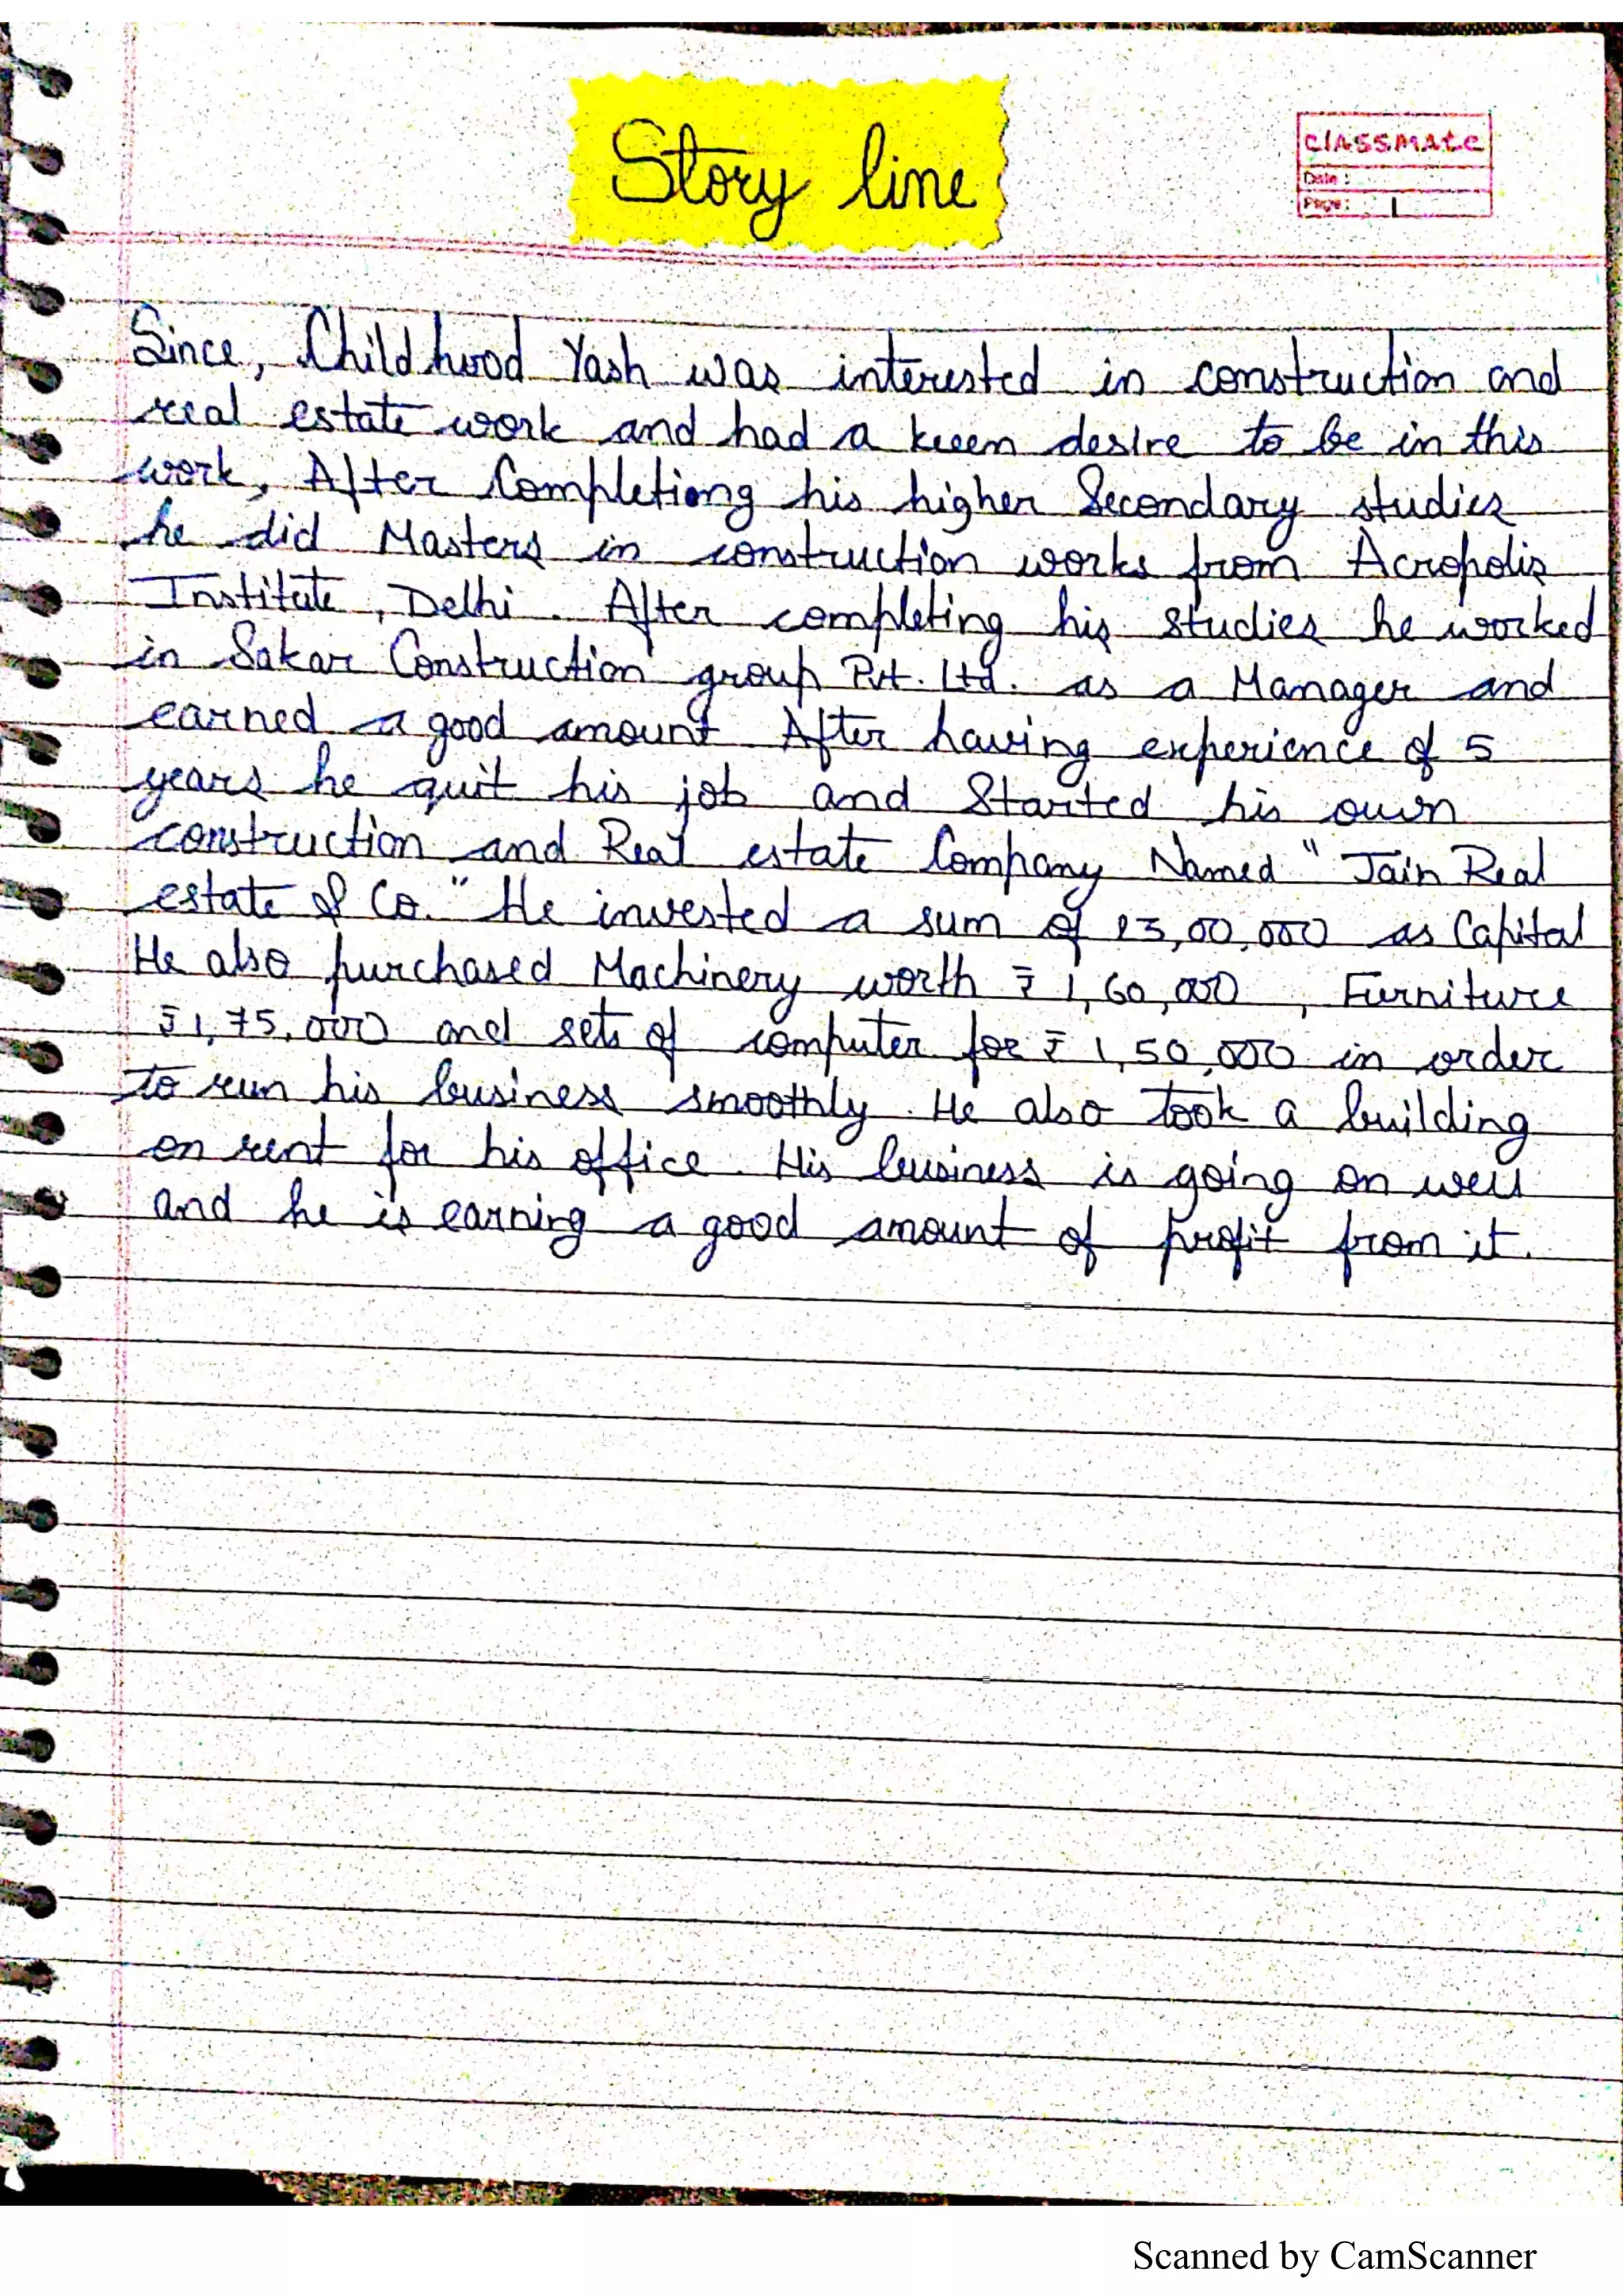 Story line
classmate
Date :
Page : 1
Since, Childhood Yash was interested in construction and
real estate work and had a keen desire to be in this
work, After Completiong his higher Secondary studies
he did Masters in construction works from Acropolis
Institute, Delhi. After completing his studies he worked
in Sakar Construction group Pvt. Ltd. as a Manager and
earned a good amount After having experience of 5
years he quit his job and Started his own
construction and Real estate Company Named "Jain Real
estate & Co." He invested a sum of 23,00,000 as Capital
He also purchased Machinery worth ₹ 1,60,000, Furniture
₹1,75,000 and sets of computer for ₹ 1,50,000 in order
to run his business smoothly. He also took a building
on rent for his office. His business is going on well
and he is earning a good amount of profit from it.
Scanned by CamScanner